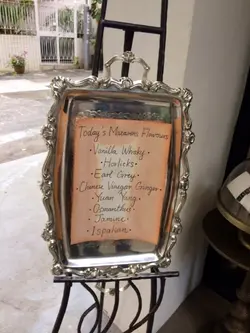 Today's Macarons Flavours
• Vanilla Whisky •
• Horlicks •
• Earl Grey •
• Chinese Vinegar Ginger •
• Yuan Yang •
• Osmanthus •
• Jasmine •
• Ispahan •